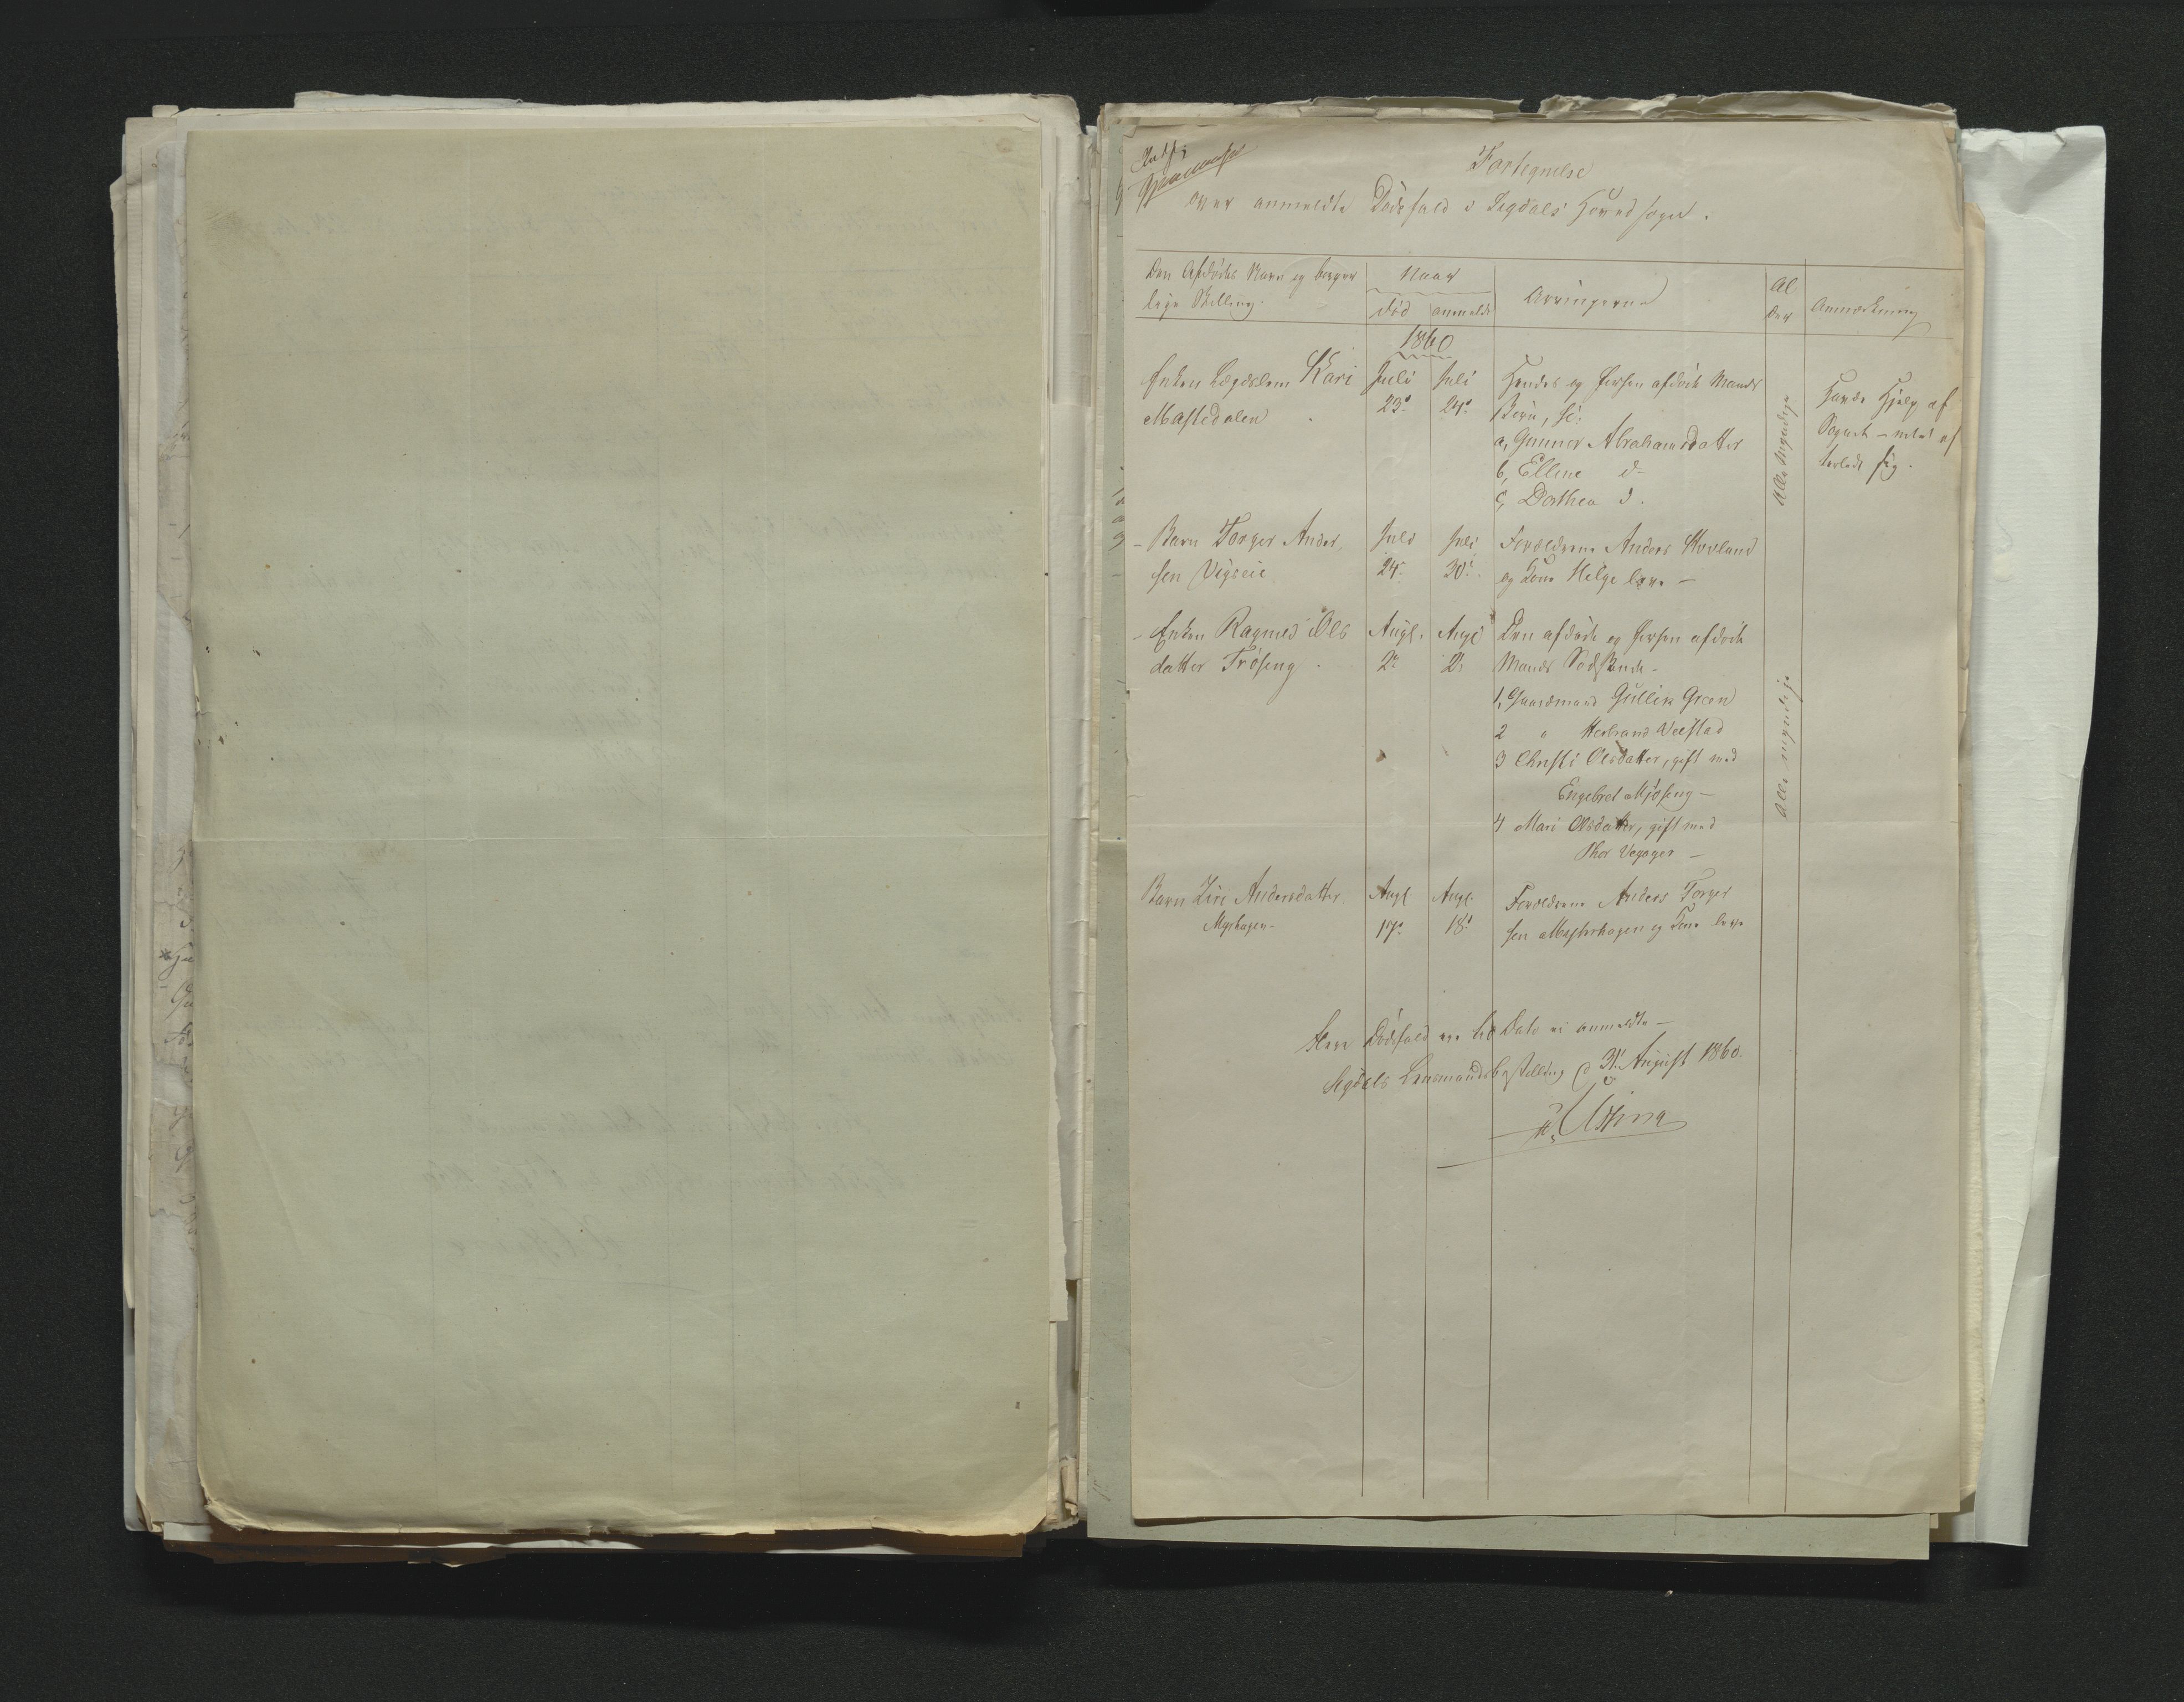 Fortegnelse
over anmeldte Dødsfald i Sigdals Hovedsogn.
Den Afdødes Navn og borger
lige Stilling.
Naar
død
anmeldt
Arvingerne
Al
der
Anmærkning
1860
Enken Lægdslem Kari
Mastedalen
Juli
23.
Juli
24.
Hendes og forhen afdøde Mands
Børn,
a, Gunnor Abrahamsdatter
b, Ellene d-
c, Dorthea d.
Alle myndige
Havde Hjelp af
Sognet – intet ef
terladt sig.
- Barn Torger Ander
sen Vigseie
Juli
24.
Juli
30.
Forældrene Anders Hovland
og Kone Helge leve –
- Enken Ragnild Ols
datter Trøseng.
Augt.
2.
Augt
2.
Den afdøde og forhen afdøde
Mands Sødskende –
1, Gaardmand Gullik Green
2 " Herbrand Veestad
3 Christi Olsdatter, gift med
Engebret Mjøseng –
4 Mari Olsdatter, gift med
Thor –
Alle myndige
Barn Siri Andersdatter
Myrhagen –
Augt
17.
Augt.
18.
Forældrene Anders Torger
sen Myhrhagen og Kone leve
Flere Dødsfald ere til Dato ei anmeldte –
Sigdals Lensmandsbestilling d 31. August 1860.